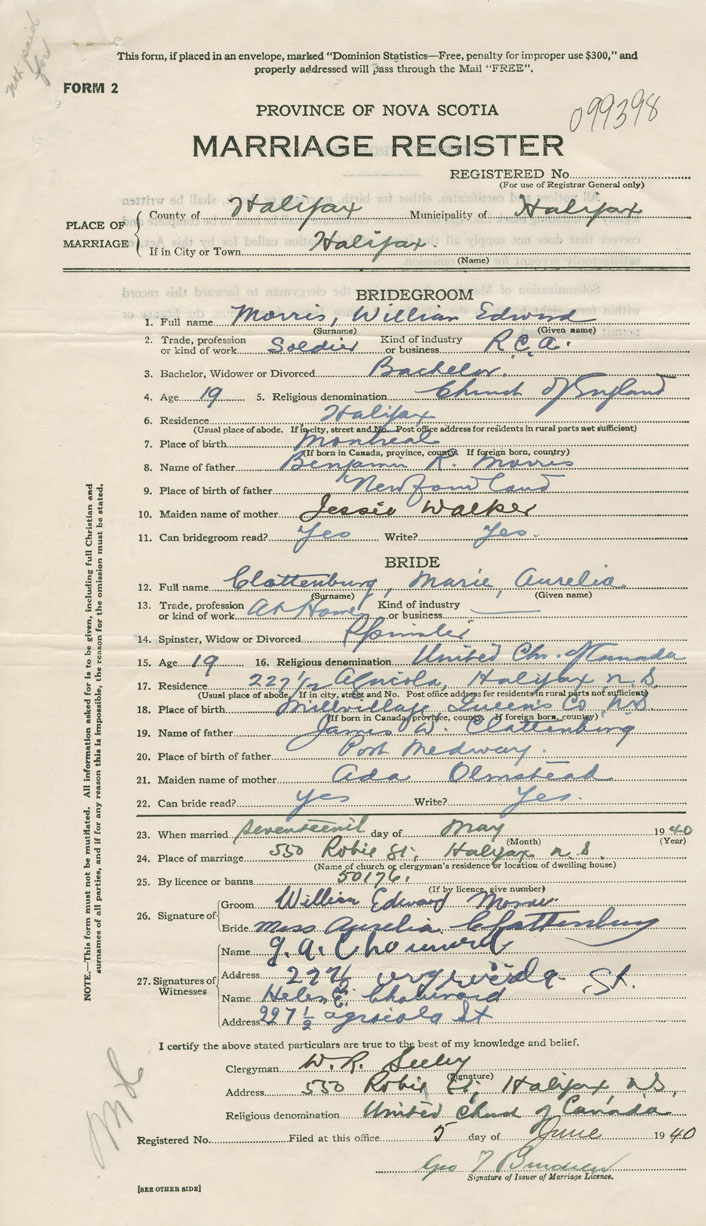 not paid for
This form, if placed in an envelope, marked "Dominion Statistics—Free, penalty for improper use $300," and
properly addressed will pass through the Mail "FREE".
FORM 2
PROVINCE OF NOVA SCOTIA
099398
MARRIAGE REGISTER
REGISTERED No.
(For use of Registrar General only)
PLACE OF MARRIAGE
County of Halifax Municipality of Halifax
If in City or Town Halifax.
(Name)
BRIDEGROOM
1. Full name Morris, William Edward
(Surname) (Given name)
2. Trade, profession or kind of work Soldier Kind of industry or business R.C.A.
3. Bachelor, Widower or Divorced Bachelor.
4. Age 19 5. Religious denomination Church of England
6. Residence Halifax
(Usual place of abode. If in city, street and No. Post office address for residents in rural parts not sufficient)
7. Place of birth Montreal
(If born in Canada, province, county. If foreign born, country)
8. Name of father Benjamin R. Morris
9. Place of birth of father Newfoundland
10. Maiden name of mother Jessie Walker
11. Can bridegroom read? Yes Write? Yes.
BRIDE
12. Full name Clattenburg, Marie, Aurelia
(Surname) (Given name)
13. Trade, profession or kind of work At Home Kind of industry or business
14. Spinster, Widow or Divorced Spinster
15. Age 19 16. Religious denomination United Ch. of Canada
17. Residence 227 1/2 Agriola, Halifax N.S.
(Usual place of abode. If in city, street and No. Post office address for residents in rural parts not sufficient)
18. Place of birth Millvillage Queen's Co, N.S
(If born in Canada, province, county. If foreign born, country)
19. Name of father James W. Clattenburg
20. Place of birth of father Port Medway.
21. Maiden name of mother Ada Olmstead
22. Can bride read? Yes Write? Yes.
23. When married Seventeenth day of May 1940
(Month) (Year)
24. Place of marriage 550 Robie St., Halifax N.S.
(Name of church or clergyman's residence or location of dwelling house)
25. By licence or banns 50176.
(If by licence, give number)
26. Signature of
Groom William Edward Morris
Bride Miss Aurelia Clattenburg
27. Signatures of Witnesses
Name G. A.
Address 227½ St.
Name Helen E.
Address 227½ agricola St
I certify the above stated particulars are true to the best of my knowledge and belief.
Clergyman W. R. Seeley
(Signature)
Address 550 Robie St., Halifax, N.S.
Religious denomination United Church of Canada
Registered No. Filed at this office 5 day of June 1940
Geo
Signature of Issuer of Marriage Licence.
[SEE OTHER SIDE]
NOTE.—This form must not be mutilated. All information asked for is to be given, including full Christian and
surnames of all parties, and if for any reason this is impossible, the reason for the omission must be stated.